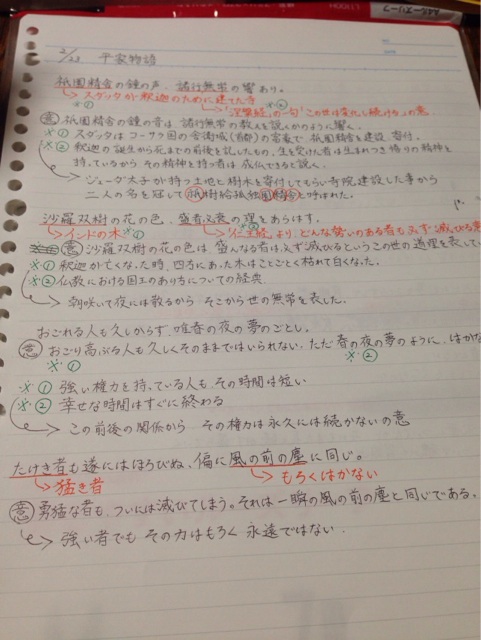 2/23 平家物語
祇園精舎の鐘の声、諸行無常の響あり。
→スダッタが釈迦のために建てた寺 ※①
「涅槃経」の一句「この世は変化し続ける」の意 ※②
意 祇園精舎の鐘の音は、諸行無常の教えを説くかのように響く。
※① スダッタはコーサラ国の舎衛城(首都)の富豪で、祇園精舎を建設、寄付。
※② 釈迦の誕生から死までの前後を記したもの。生を受けた者は生まれつき悟りの精神と
持っているから その精神と持つ者は成仏できると説く。
ジェータ太子が持つ土地と樹木を寄付してもらい寺院建設した事から
二人の名を冠して祇樹給孤独園精舎と呼ばれた。
沙羅双樹の花の色、盛者必衰の理をあらはす。
→インドの木 ※①
→「仁王経」より、どんな勢いのある者も必ず滅びる意 ※②
意 沙羅双樹の花の色は、盛んなる者は必ず滅びるというこの世の道理を表して
※① 釈迦が亡くなった時、四方にあった木はことごとく枯れて白くなった。
※② 仏教における国王のあり方についての経典
→ 朝咲いて夜には散るから そこから世の無常を表した。
おごれる人も久しからず、唯春の夜の夢のごとし。
意 おごり高ぶる人も久しくそのままではいられない、ただ春の夜の夢のように、はかな
※① ※②
※① 強い権力を持っている人も、その時間は短い
※② 幸せな時間はすぐに終わる
→ この前後の関係から その権力は永久には続かないの意
たけき者も遂にはほろびぬ、偏に風の前の塵に同じ。
→猛き者 →もろくはかない
意 勇猛な者も、ついには滅びてしまう。それは一瞬の風の前の塵と同じである。
→ 強い者でも その力はもろく 永遠ではない.